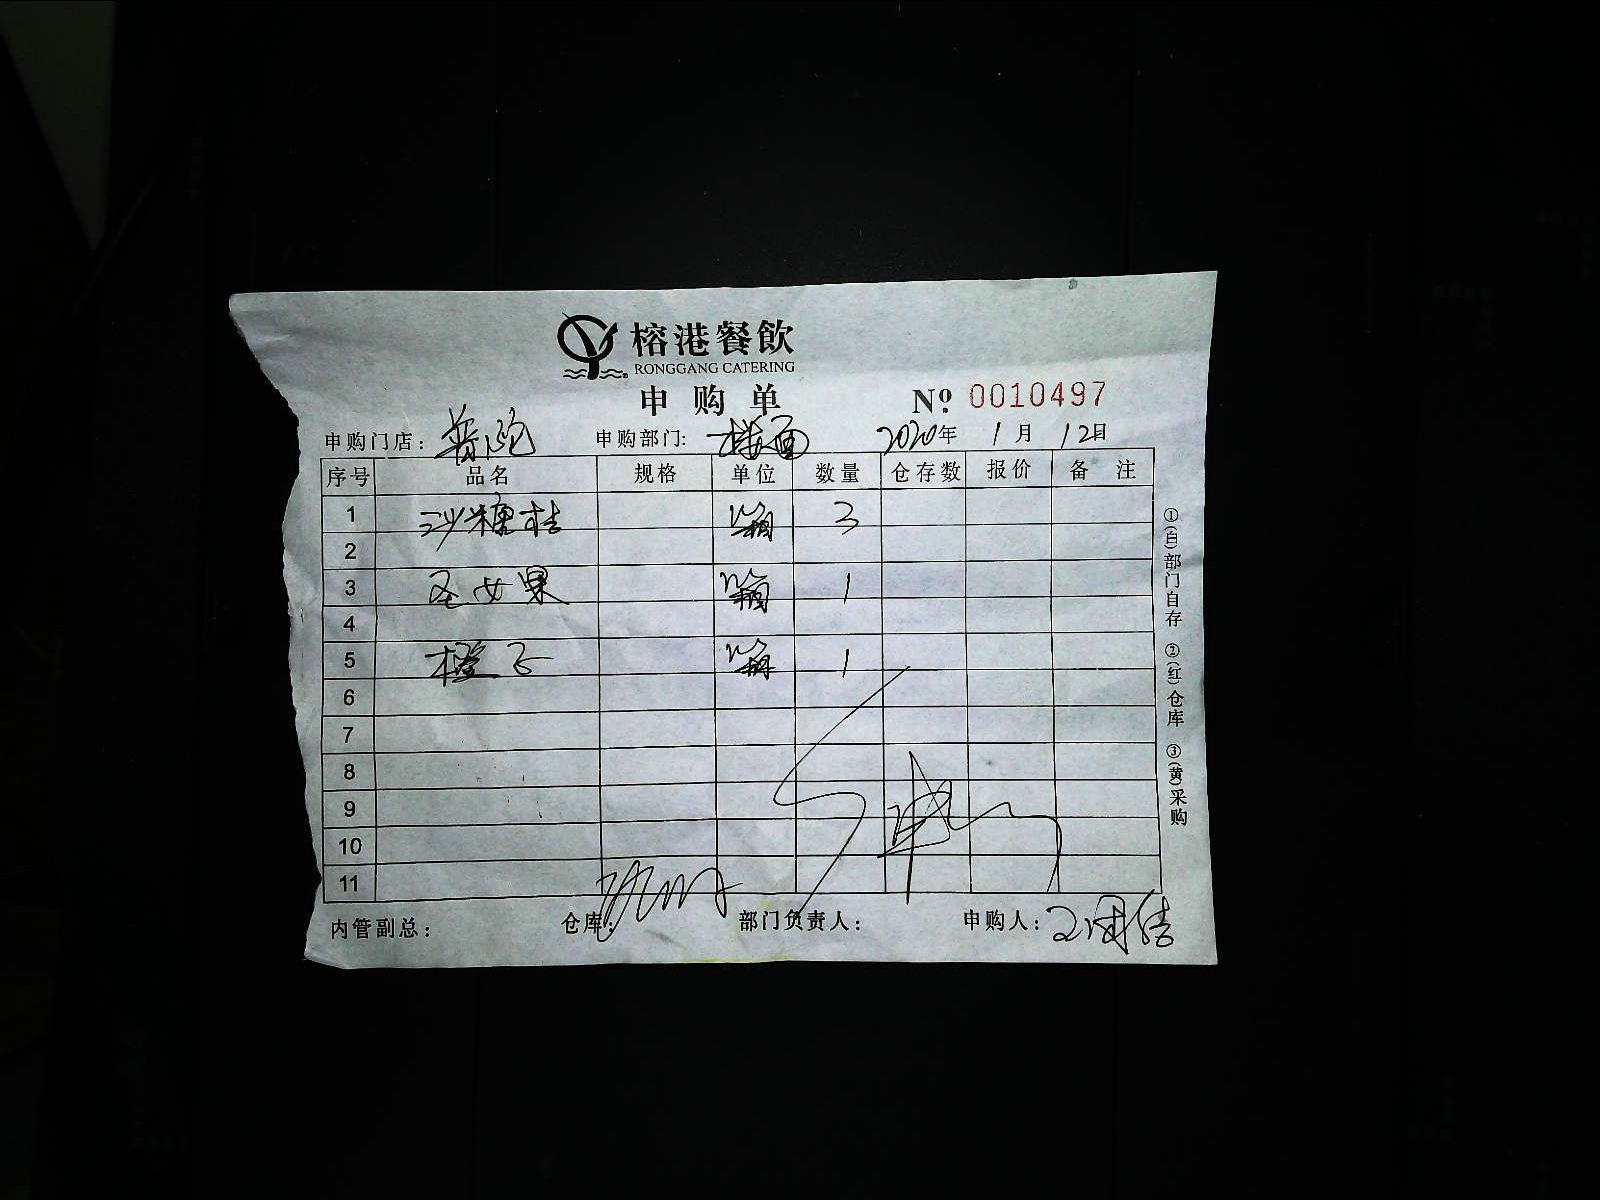 榕港餐飲
RONGGANG CATERING
申购单 Nº 0010497
申购门店: 普陀 申购部门: 楼面 2020年 1月 12日
序号 品名 规格 单位 数量 仓存数 报价 备注
1 沙糖桔 箱 3
2
3 圣女果 箱 1
4
5 橙子 箱 1
6
7
8
9
10
11
内管副总: 仓库: 部门负责人: 申购人:
①(白)部门自存 ②(红)仓库 ③(黄)采购